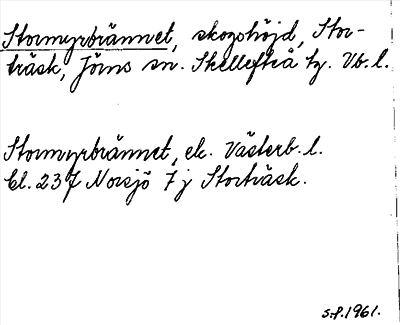 Stormyrbrännet, skogshöjd, Stor-
träsk, Jörns sn. Skellefteå tg. Vb. l.
Stormyrbrännet, ek. Västerb. l.
bl. 237 Norsjö 7 j Storträsk.
S.P. 1961.